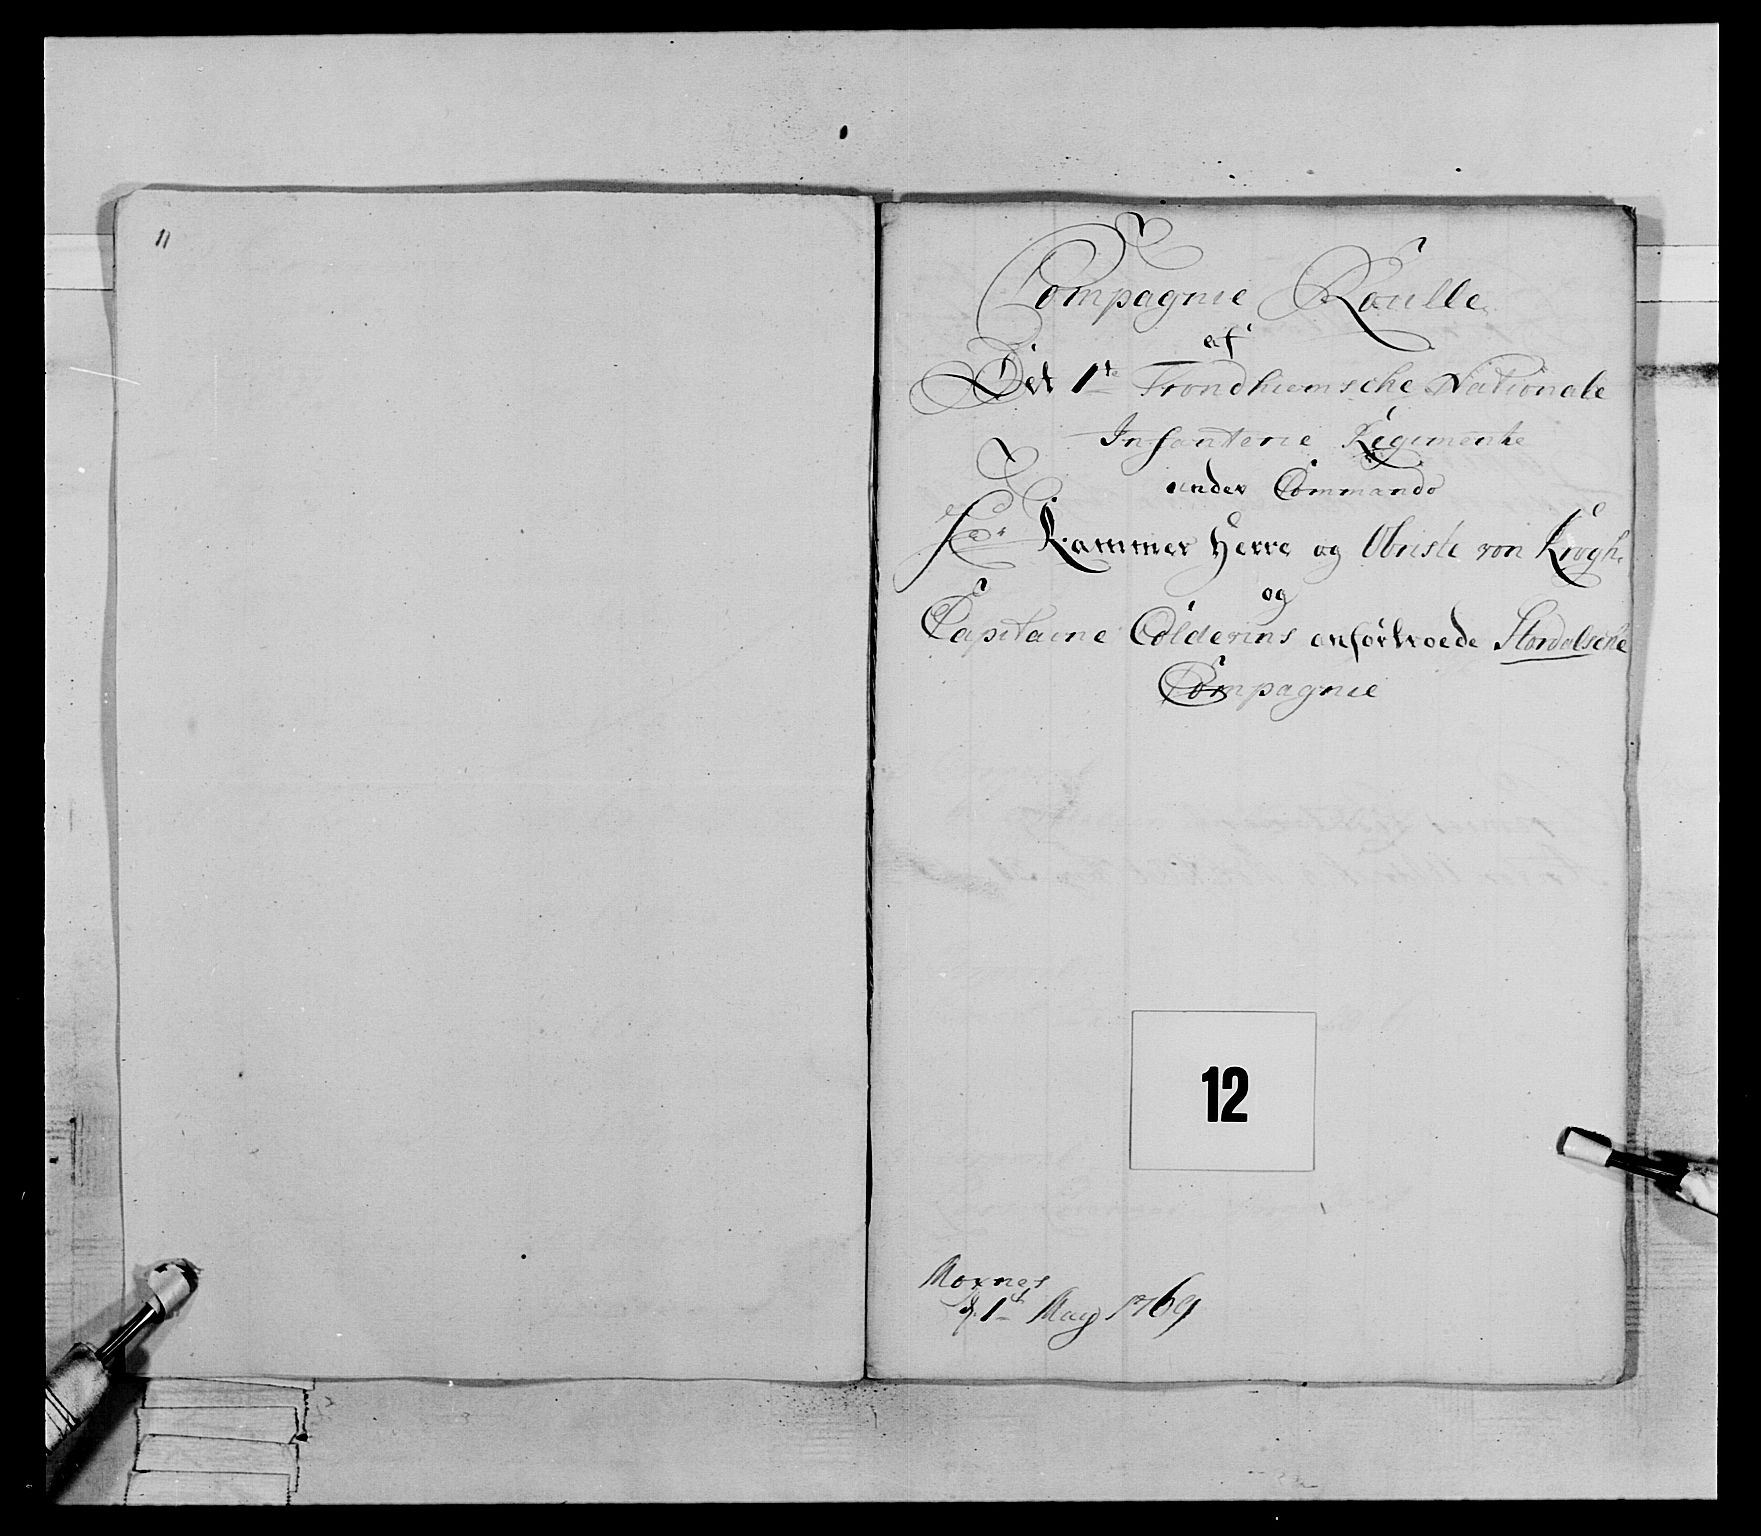 11
Compagnie Roulle
af
Det 1te Trondhiemsche Nationale
Infanterie Regimente
under Commando
Hr Kammer Herre og Obriste von Krogh.
og
Capitaine Colderins anfortroede Stordalsche
Compagnie
12
Moxnes
d. 1t May 1769